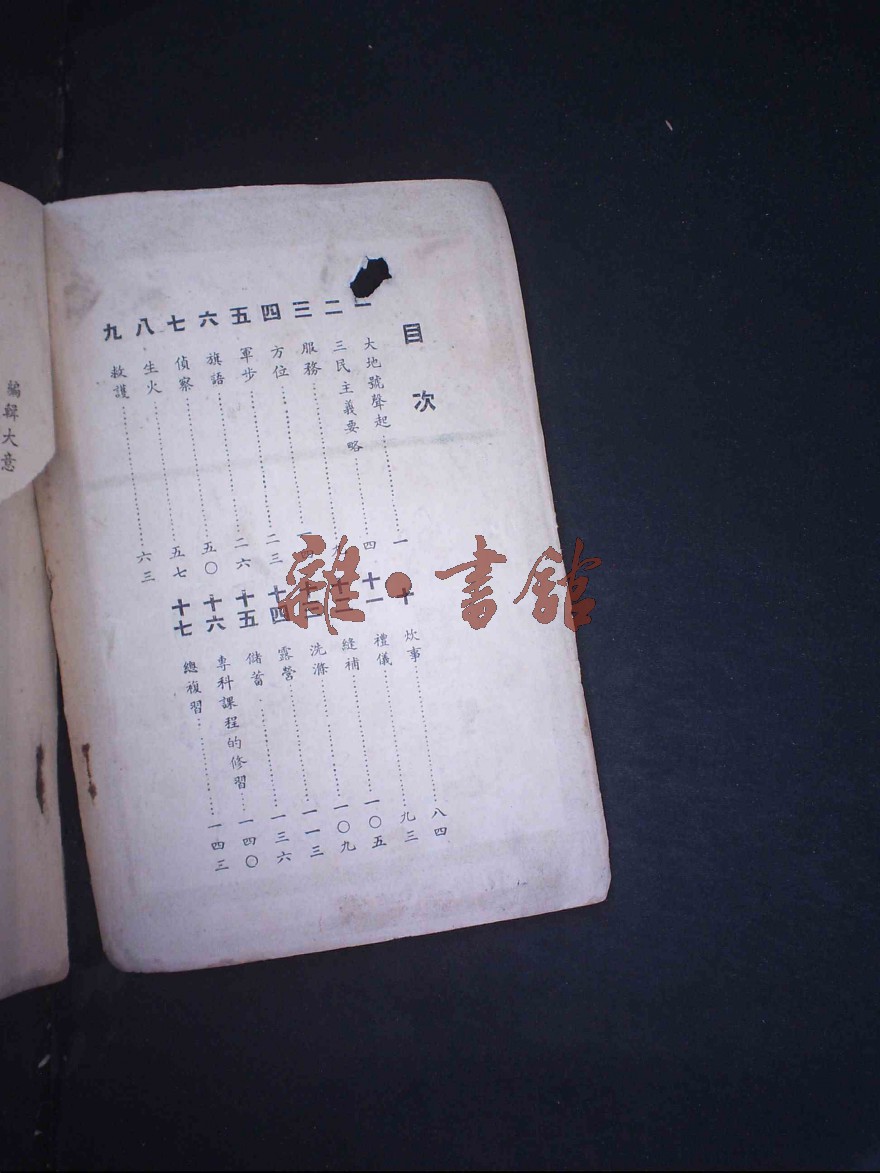 目次
一 大地號聲起……一
二 三民主義要略……四
三 服務……九
四 方位……
五 軍步……二三
六 旗語……二六
七 偵察……五〇
八 生火……五七
九 救護……六三
十 炊事……八四
十一 禮儀……九三
十二 縫補……一〇五
十三 洗滌……一〇九
十四 露營……一一三
十五 儲蓄……一三六
十六 專科課程的修習……一四〇
十七 總複習……一四三
編輯大意
雜·書館